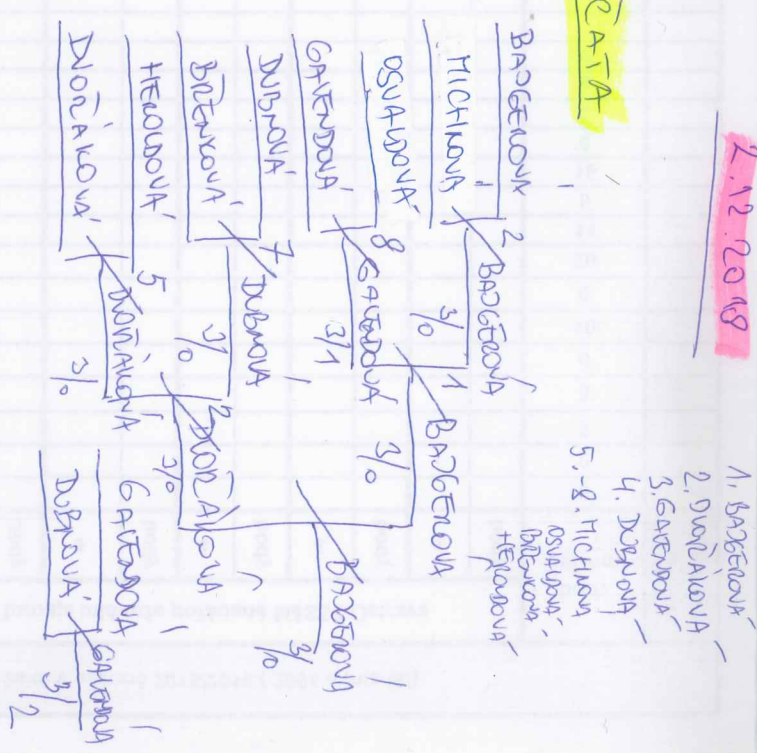 2.12.2018
BAJGEROVÁ
MICHNOVÁ
OSVALDOVÁ
GAVENDOVÁ
DUBNOVÁ
BŘENKOVÁ
HEROLDOVÁ
DVOŘÁKOVÁ
BAJGEROVÁ
3/0
GAVENDOVÁ
3/1
DUBNOVÁ
3/0
DVOŘÁKOVÁ
3/0
BAJGEROVÁ
3/0
DVOŘÁKOVÁ
3/0
BAJGEROVÁ
3/0
GAVENDOVÁ
DUBNOVÁ
GAVENDOVÁ
3/2
1. BAJGEROVÁ
2. DVOŘÁKOVÁ
3. GAVENDOVÁ
4. DUBNOVÁ
5.-8. MICHNOVÁ
OSVALDOVÁ
BŘENKOVÁ
HEROLDOVÁ